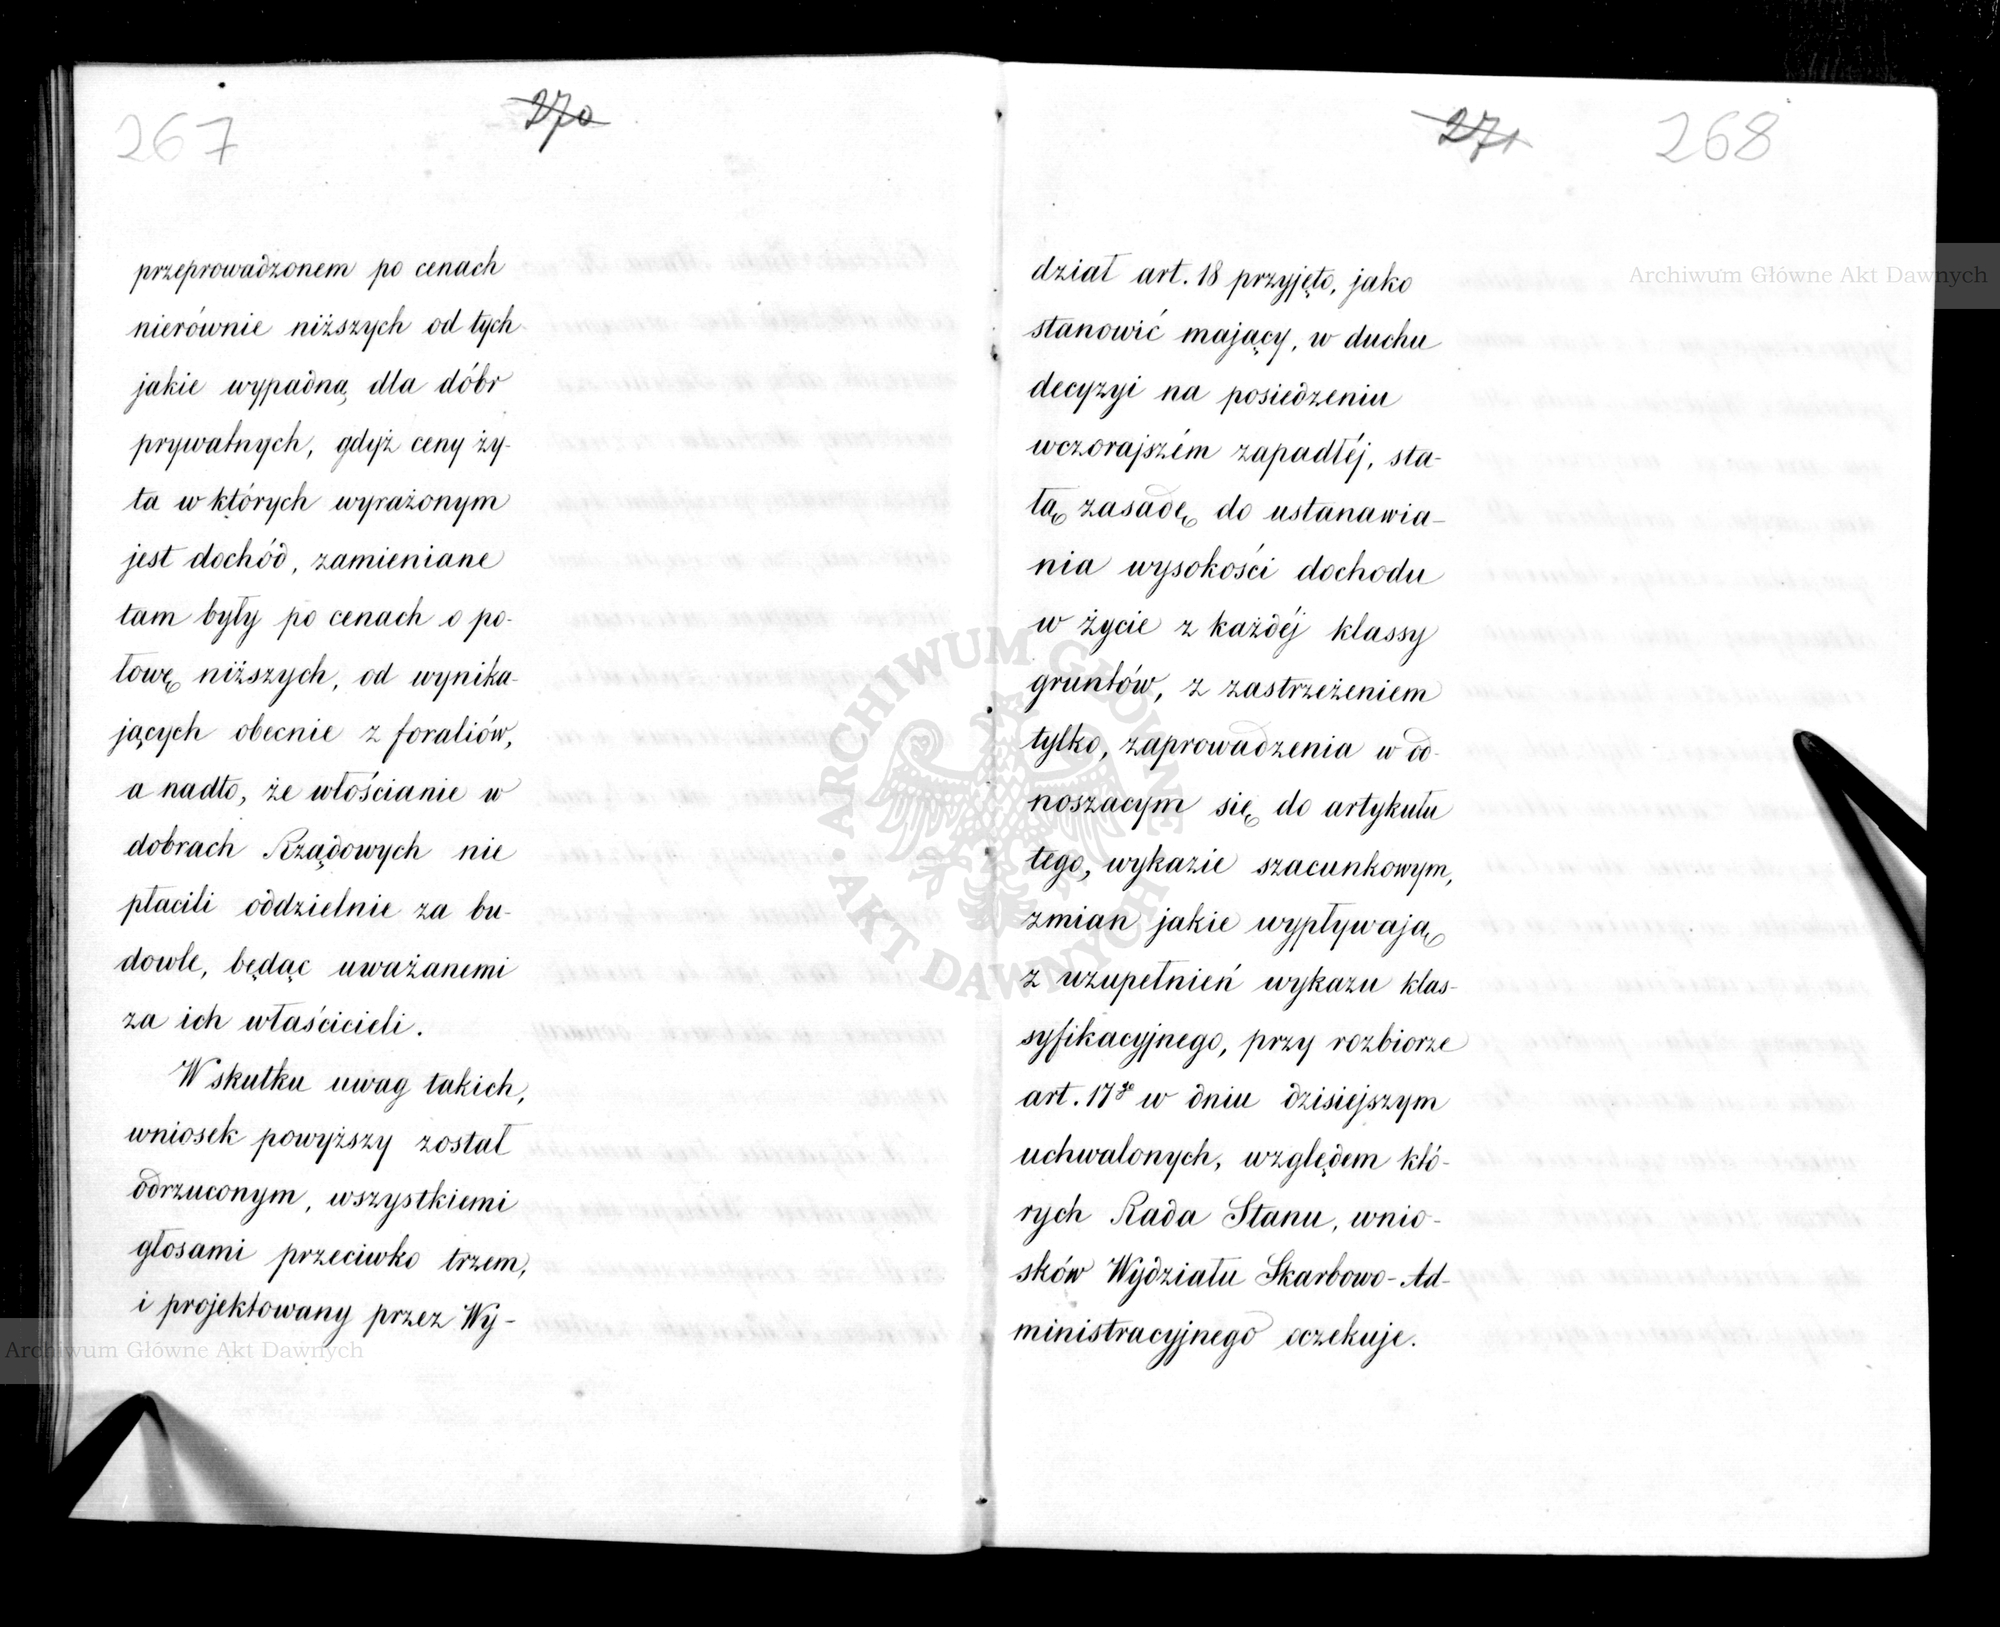 267
270
przeprowadzonem po cenach
nierównie niższych od tych
jakie wypadną dla dóbr
prywatnych, gdyż ceny ży-
ta w których wyrażonym
jest dochód, zamieniane
tam były po cenach o po-
łowę niższych, od wynika-
jących obecnie z foraliów,
a nadto, że włościanie w
dobrach Rządowych nie
płacili oddzielnie za bu-
dowle, będąc uważanemi
za ich właścicieli.
W skutku uwag takich,
wniosek powyższy został
odrzuconym, wszystkiemi
głosami przeciwko trzem,
i projektowany przez Wy-
271
268
dział art. 18 przyjęto, jako
stanowić mający, w duchu
decyzyi na posiedzeniu
wczorajszém zapadłéj, sta-
łą zasadę do ustanawia-
nia wysokości dochodu
w życie z każdéj klassy
gruntów, z zastrzeżeniem
tylko, zaprowadzenia w od-
noszacym się do artykułu
tego, wykazie szacunkowym,
zmian jakie wypływają
z uzupełnień wykazu klas-
syfikacyjnego, przy rozbiorze
art. 17go w dniu dzisiejszym
uchwalonych, względem któ-
rych Rada Stanu, wnio-
sków Wydziału Skarbowo-Ad-
ministracyjnego oczekuje.
Archiwum Główne Akt Dawnych
Archiwum Główne Akt Dawnych
ARCHIWUM GŁÓWNE
AKT DAWNYCH